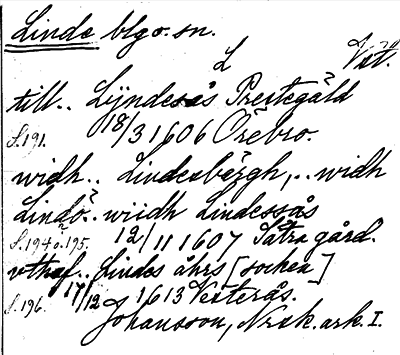 Linde blgo. sn.
L Vst.
till.. Lÿndesås Prestegåld
S. 191. 18/3 1606 Örebro.
widh.. Lindesbërgh,.. widh
Lindö.. wiidh Lindessås
S. 194 o. 195. 12/11 1607 Sätra gård.
vthaf.. Lindes åhrs [socken]
S. 196. 17/12 1613 Vesterås.
Johansson, Norsk. ark. I.